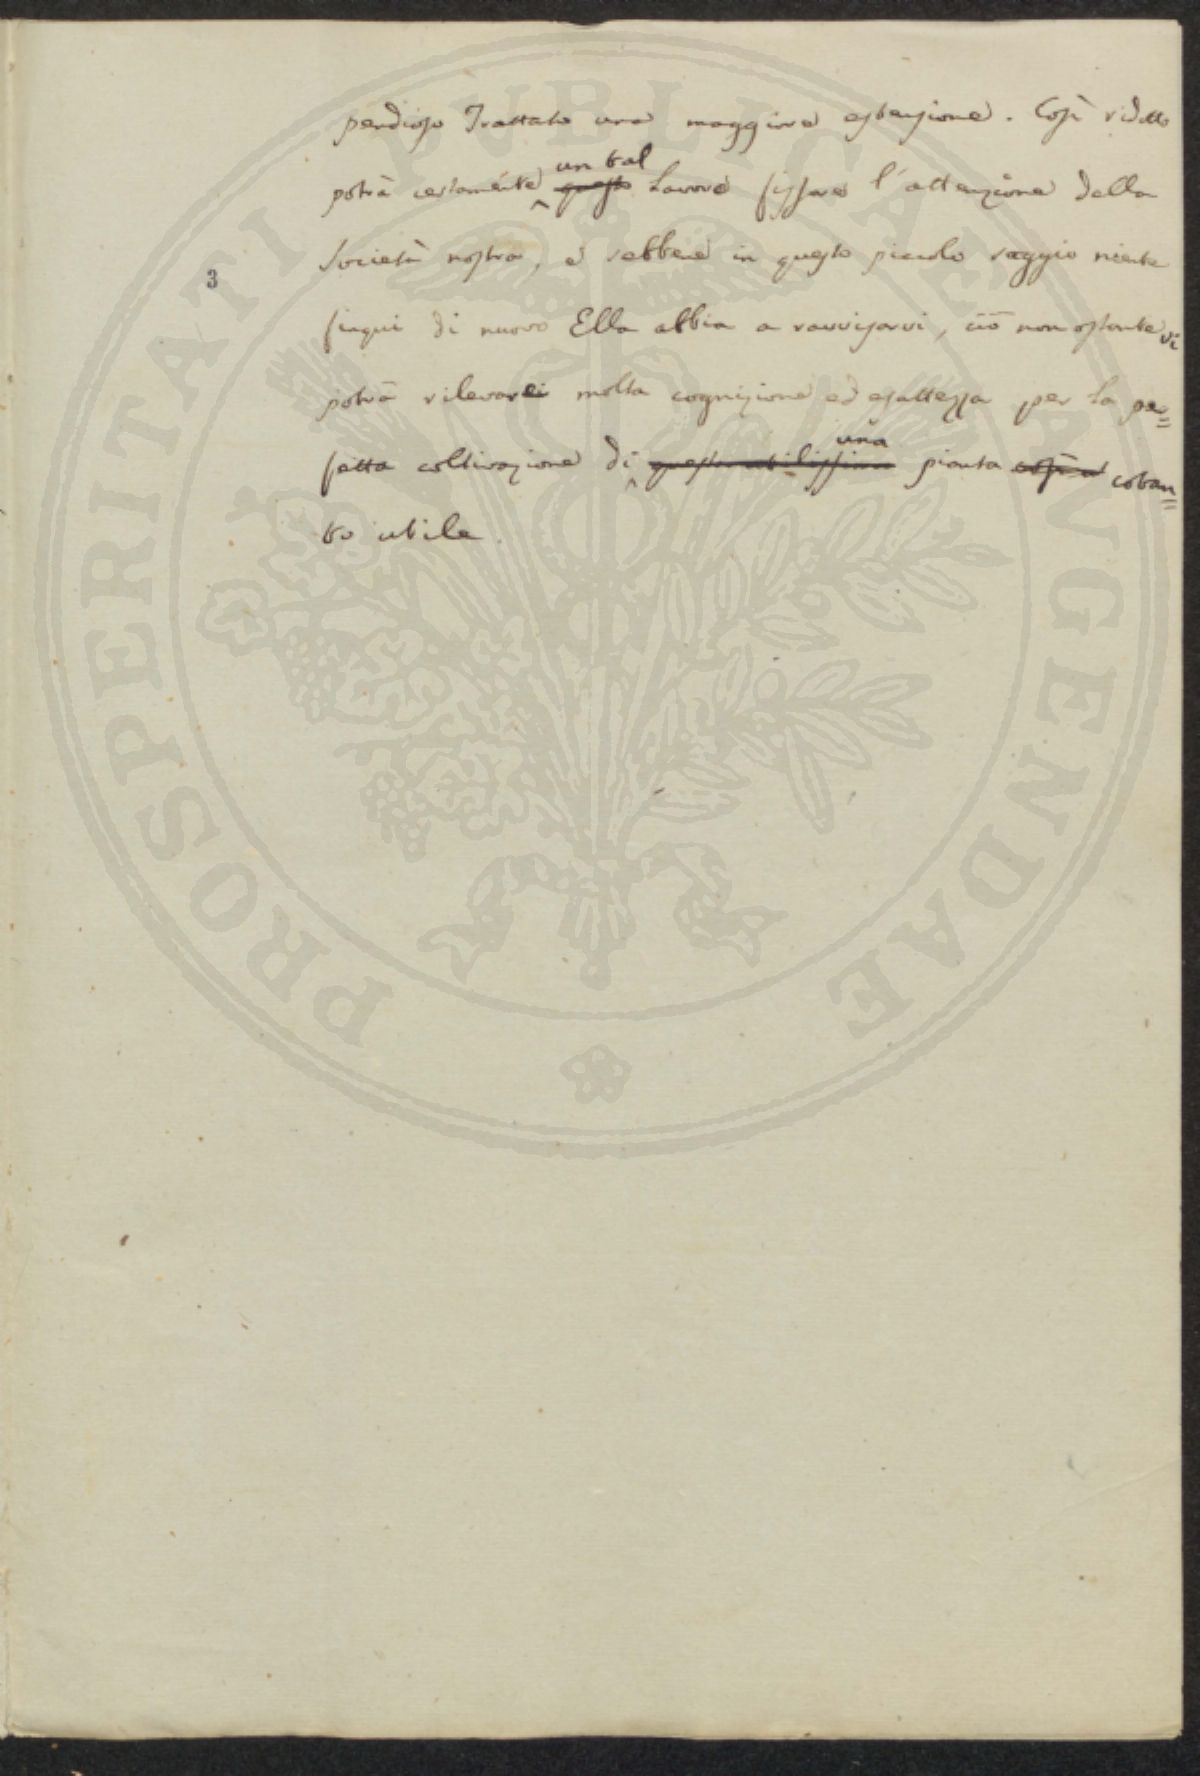 pendioso Trattato una maggiore estensione. Così ridotto
potrà certamente un tal questo Lavoro fissare l'attenzione della
Società nostra, e sebbene in questo piccolo saggio niente
3
finqui di nuovo Ella abbia a ravvisarvi, ciò non ostante vi
potrà rilevarvi molta cognizione ed esattezza per la per=
fetta coltivazione di questa utilissima una pianta così ut cotan=
to utile.
PROSPERITATI PUBLICAE AUGENDAE